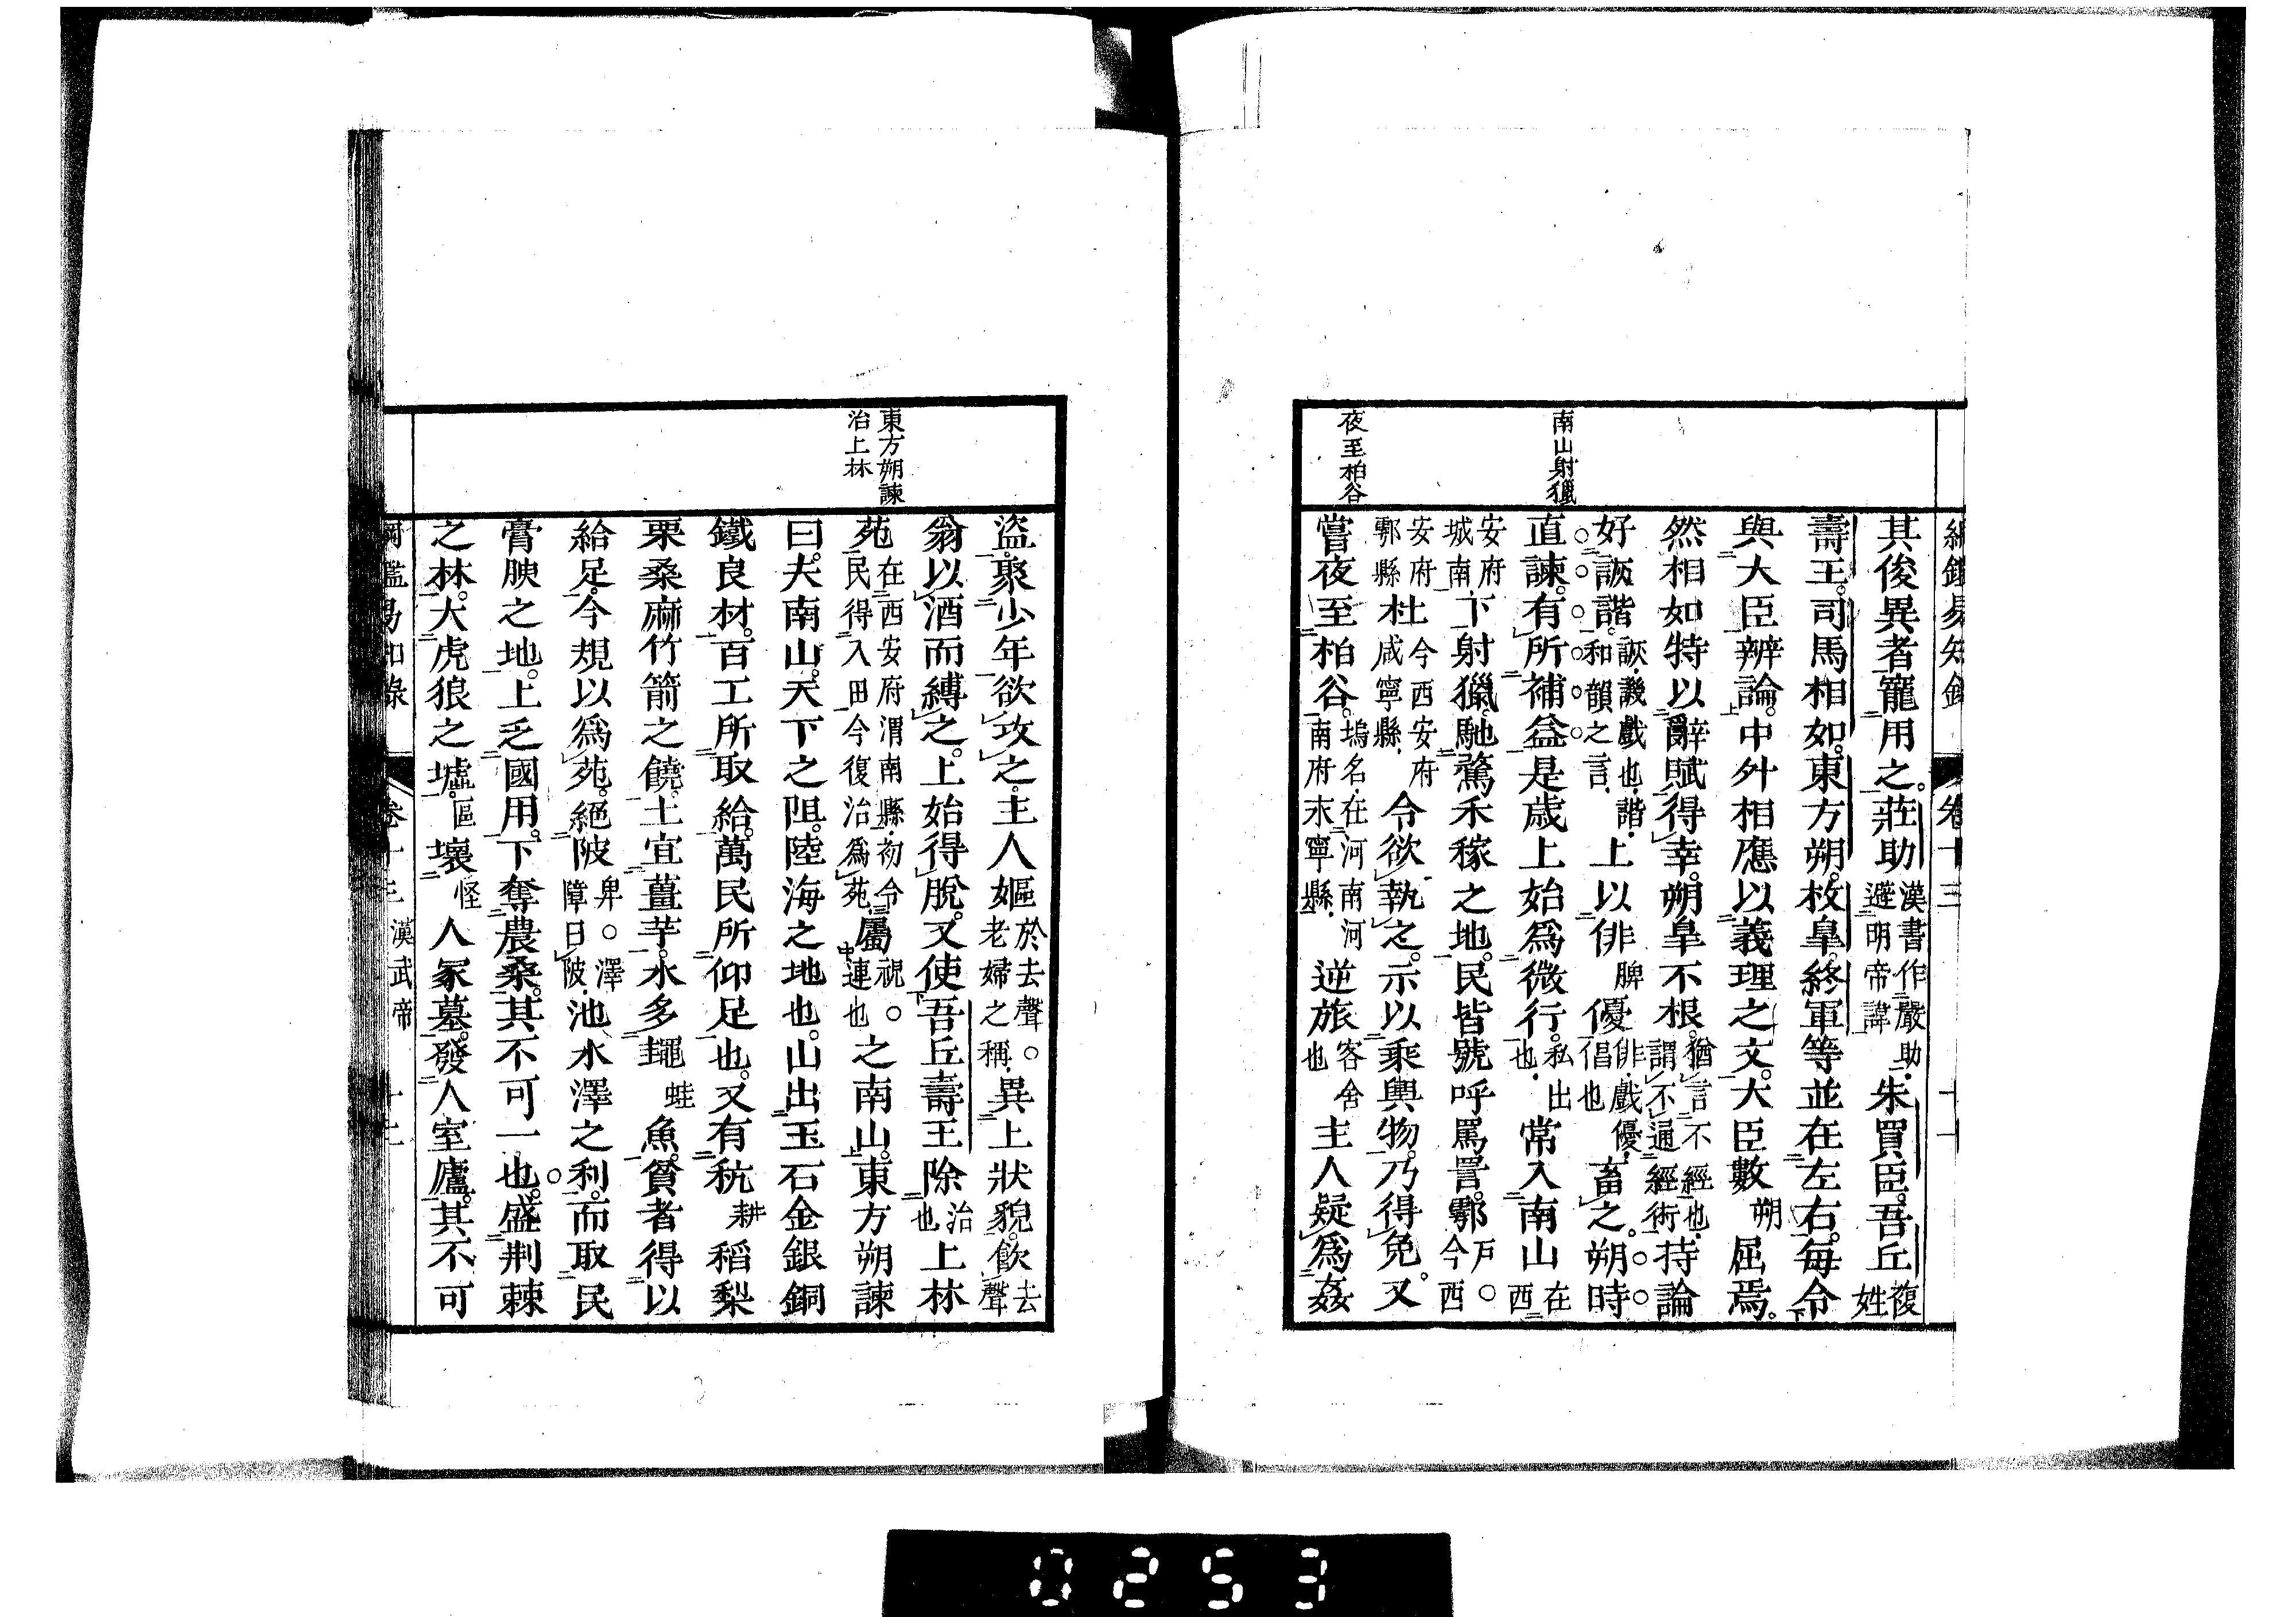 綱鑑易知錄 卷十三 十一
南山射獵
夜至柏谷
其俊異者寵用之。莊助漢書作嚴助避明帝諱朱買臣。吾丘複姓
壽王。司馬相如。東方朔。枚皐。終軍等並在左右。每令
與大臣辨論。中外相應以義理之文。大臣數朔屈焉。
然相如特以辭賦得幸。朔皐不根。猶言不經也。謂不通經術持論
好詼諧。詼。譏戲也。諧。和韻之言。上以俳脾優俳。戲。優。倡也畜之。朔時
直諫。有所補益。是歲上始爲微行。私出也。常入南山在西
安府城南。下射獵。馳騖禾稼之地。民皆號呼罵詈。鄠戸。○今西
安府鄠縣杜今西安府咸寧縣。令欲執之。示以乘輿物。乃得免。又
嘗夜至柏谷。塢名。在河南河南府永寧縣。逆旅客舍也主人疑爲姦
東方朔諫
治上林
盜。聚少年欲攻之。主人嫗於去聲。○老婦之稱。異上狀貌。飮去聲
翁以酒而縛之。上始得脫。又使吾丘壽王除治也上林
苑在西安府渭南縣。初令民得入田今復治爲苑。屬覗。○連也之南山。東方朔諫
曰。夫南山。天下之阻。陸海之地也。山出玉石金銀銅
鐵良材。百工所取給。萬民所仰足也。又有秔耕稻梨
栗桑麻竹箭之饒。土宜薑芋。水多䵷蛙魚。貧者得以
給足。今規以爲苑。絕陂卑。○澤障曰陂。池水澤之利。而取民
膏腴之地。上乏國用。下奪農桑。其不可一也。盛荆棘
之林。大虎狼之墟。區壞怪人冢墓。發人室廬。其不可
綱鑑易知錄 卷十三 漢武帝 十二
0253